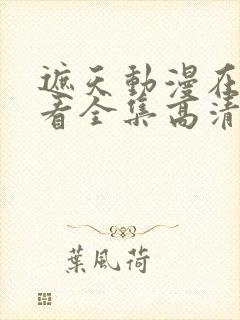 遮天動漫在
看全集高清
葉風荷